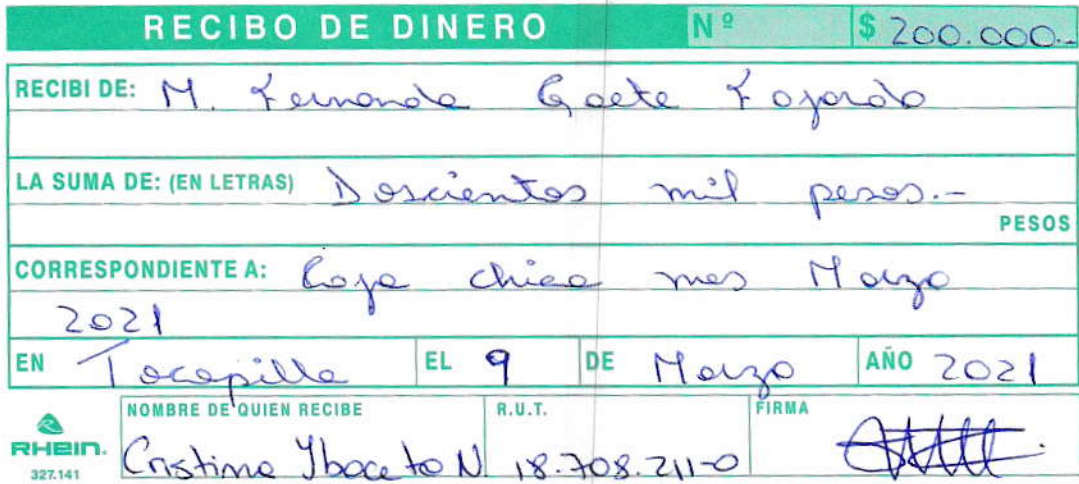 RECIBO DE DINERO Nº $ 200.000.-
RECIBI DE: M. Fernanda Gaete Fajardo
LA SUMA DE: (EN LETRAS) Doscientos mil pesos.-
PESOS
CORRESPONDIENTE A: Caja chica mes Marzo
2021
EN Tocopilla EL 9 DE Marzo AÑO 2021
NOMBRE DE QUIEN RECIBE R.U.T. FIRMA
RHEIN. Cristina N 18.708.211-0
327.141